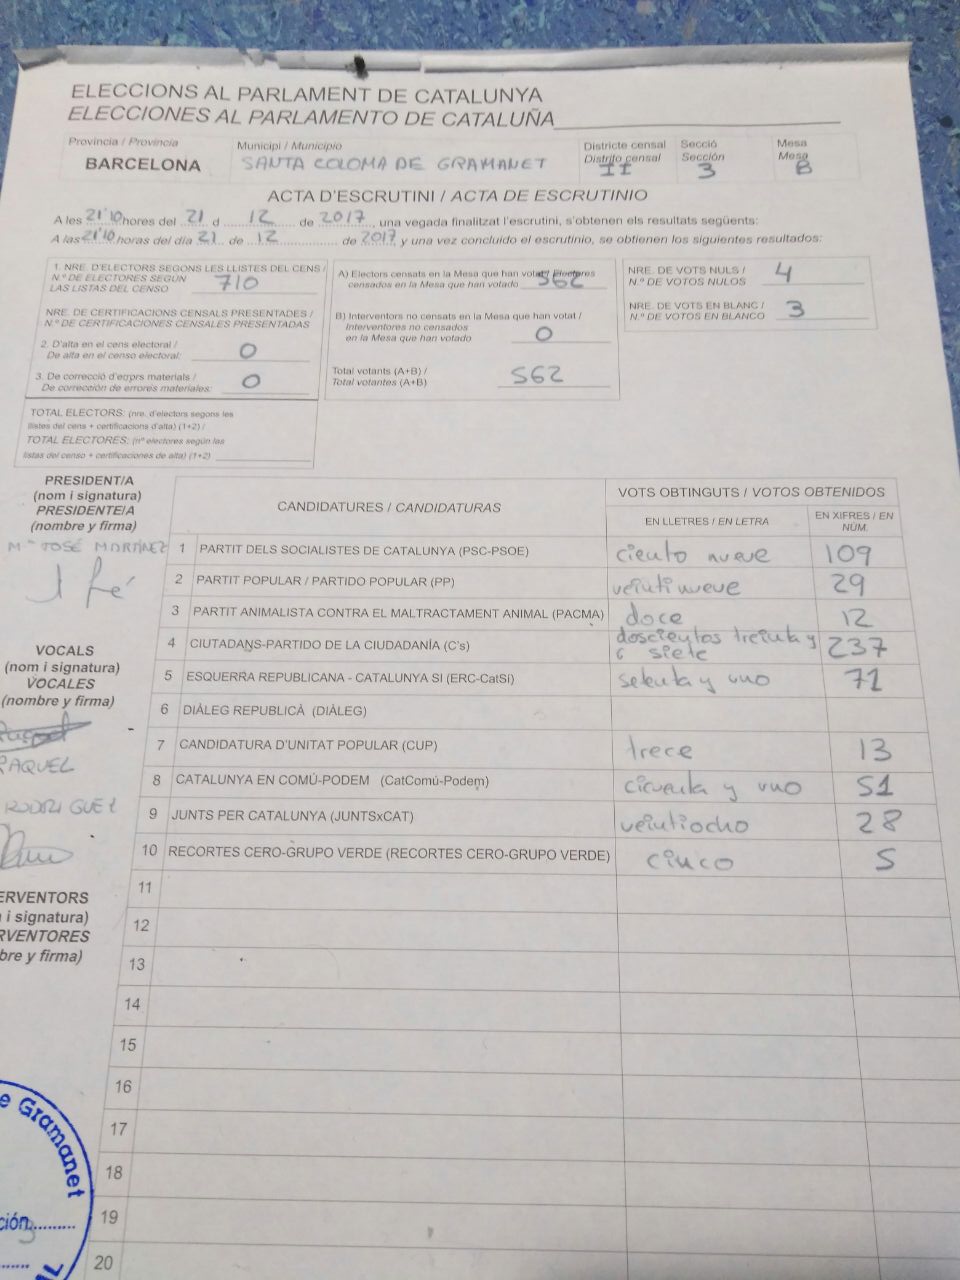 ELECCIONS AL PARLAMENT DE CATALUNYA
ELECCIONES AL PARLAMENTO DE CATALUÑA
Província / Provincia
BARCELONA
Municipi / Municipio
SANTA COLOMA DE GRAMANET
Districte censal
Distrito censal
II
Secció
Sección
3
Mesa
Mesa
B
ACTA D'ESCRUTINI / ACTA DE ESCRUTINIO
A les 21'10 hores del 21 d 12 de 2017, una vegada finalitzat l'escrutini, s'obtenen els resultats següents:
A las 21'10 horas del día 21 de 12 de 2017 y una vez concluido el escrutinio, se obtienen los siguientes resultados:
1. NRE. D'ELECTORS SEGONS LES LLISTES DEL CENS /
N.º DE ELECTORES SEGÚN
LAS LISTAS DEL CENSO 710
NRE. DE CERTIFICACIONS CENSALS PRESENTADES /
N.º DE CERTIFICACIONES CENSALES PRESENTADAS
2. D'alta en el cens electoral /
De alta en el censo electoral: 0
3. De correcció d'errors materials /
De corrección de errores materiales: 0
TOTAL ELECTORS: (nre. d'electors segons les
llistes del cens + certificacions d'alta) (1+2) /
TOTAL ELECTORES: (nº electores según las
listas del censo + certificaciones de alta) (1+2)
A) Electors censats en la Mesa que han votat / Electores
censados en la Mesa que han votado 562
B) Interventors no censats en la Mesa que han votat /
Interventores no censados
en la Mesa que han votado 0
Total votants (A+B) /
Total votantes (A+B) 562
NRE. DE VOTS NULS /
N.º DE VOTOS NULOS 4
NRE. DE VOTS EN BLANC /
N.º DE VOTOS EN BLANCO 3
PRESIDENT/A
(nom i signatura)
PRESIDENTE/A
(nombre y firma)
Mª JOSÉ MARTÍNEZ
VOCALS
(nom i signatura)
VOCALES
(nombre y firma)
RAQUEL
RODRIGUEZ
ERVENTORS
i signatura)
RVENTORES
bre y firma)
CANDIDATURES / CANDIDATURAS
VOTS OBTINGUTS / VOTOS OBTENIDOS
EN LLETRES / EN LETRA
EN XIFRES / EN
NÚM.
1 PARTIT DELS SOCIALISTES DE CATALUNYA (PSC-PSOE) ciento nueve 109
2 PARTIT POPULAR / PARTIDO POPULAR (PP) veintinueve 29
3 PARTIT ANIMALISTA CONTRA EL MALTRACTAMENT ANIMAL (PACMA) doce 12
4 CIUTADANS-PARTIDO DE LA CIUDADANÍA (C's) doscientos treinta y
siete 237
5 ESQUERRA REPUBLICANA - CATALUNYA SI (ERC-CatSí) setenta y uno 71
6 DIÀLEG REPUBLICÀ (DIÀLEG)
7 CANDIDATURA D'UNITAT POPULAR (CUP) trece 13
8 CATALUNYA EN COMÚ-PODEM (CatComú-Podem) cicuenta y uno 51
9 JUNTS PER CATALUNYA (JUNTSxCAT) veintiocho 28
10 RECORTES CERO-GRUPO VERDE (RECORTES CERO-GRUPO VERDE) cinco 5
11
12
13
14
15
16
17
18
19
20
e Gramanet
ción 3